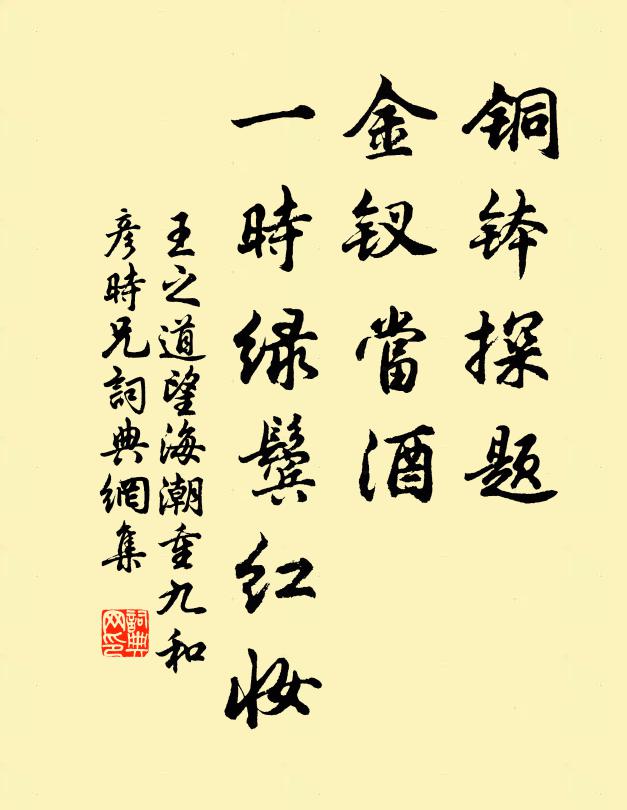 铜钵探题
金钗當酒
一時绿鬓红妆
王之道望海潮重九和
彦時兄詞典網集
詞典网印